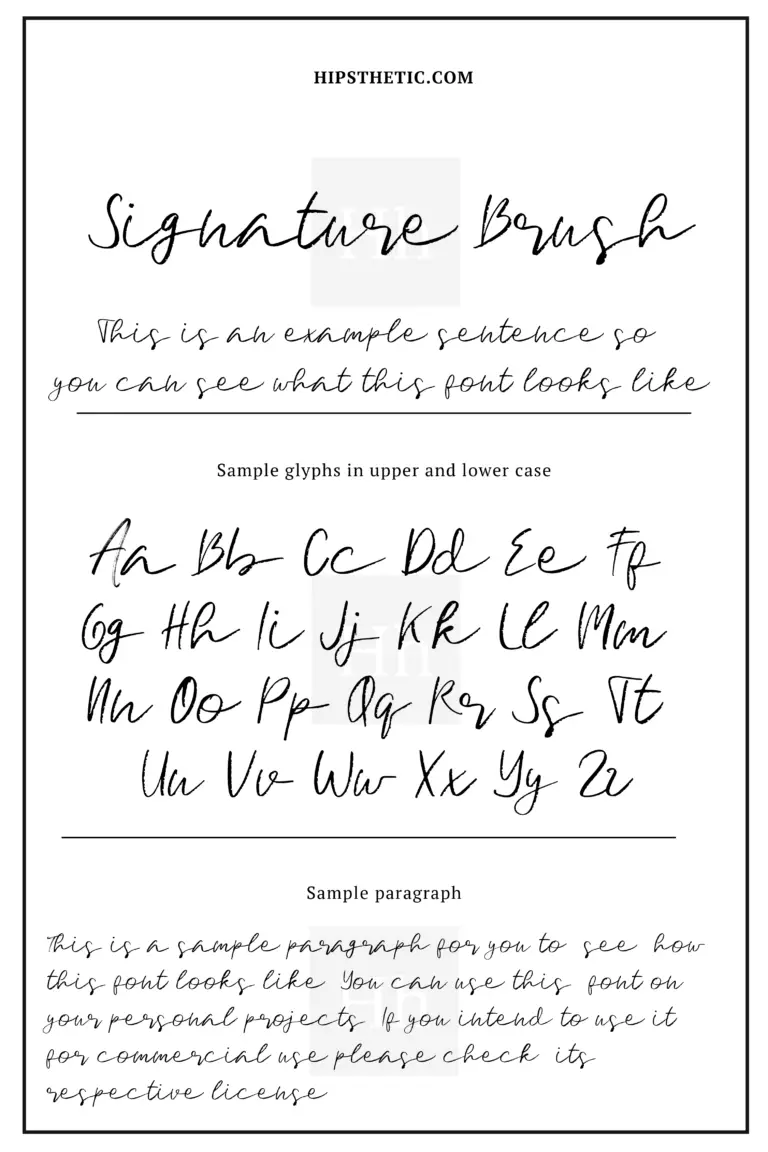 HIPSTHETIC.COM
Signature Brush
This is an example sentence so
you can see what this font looks like
Sample glyphs in upper and lower case
Aa Bb Cc Dd Ee Ff
Gg Hh Ii Jj Kk Ll Mm
Nn Oo Pp Qq Rr Ss Tt
Uu Vv Ww Xx Yy Zz
Sample paragraph
This is a sample paragraph for you to see how
this font looks like You can use this font on
your personal projects If you intend to use it
for commercial use please check its
respective license
Hh
Hh
Hh